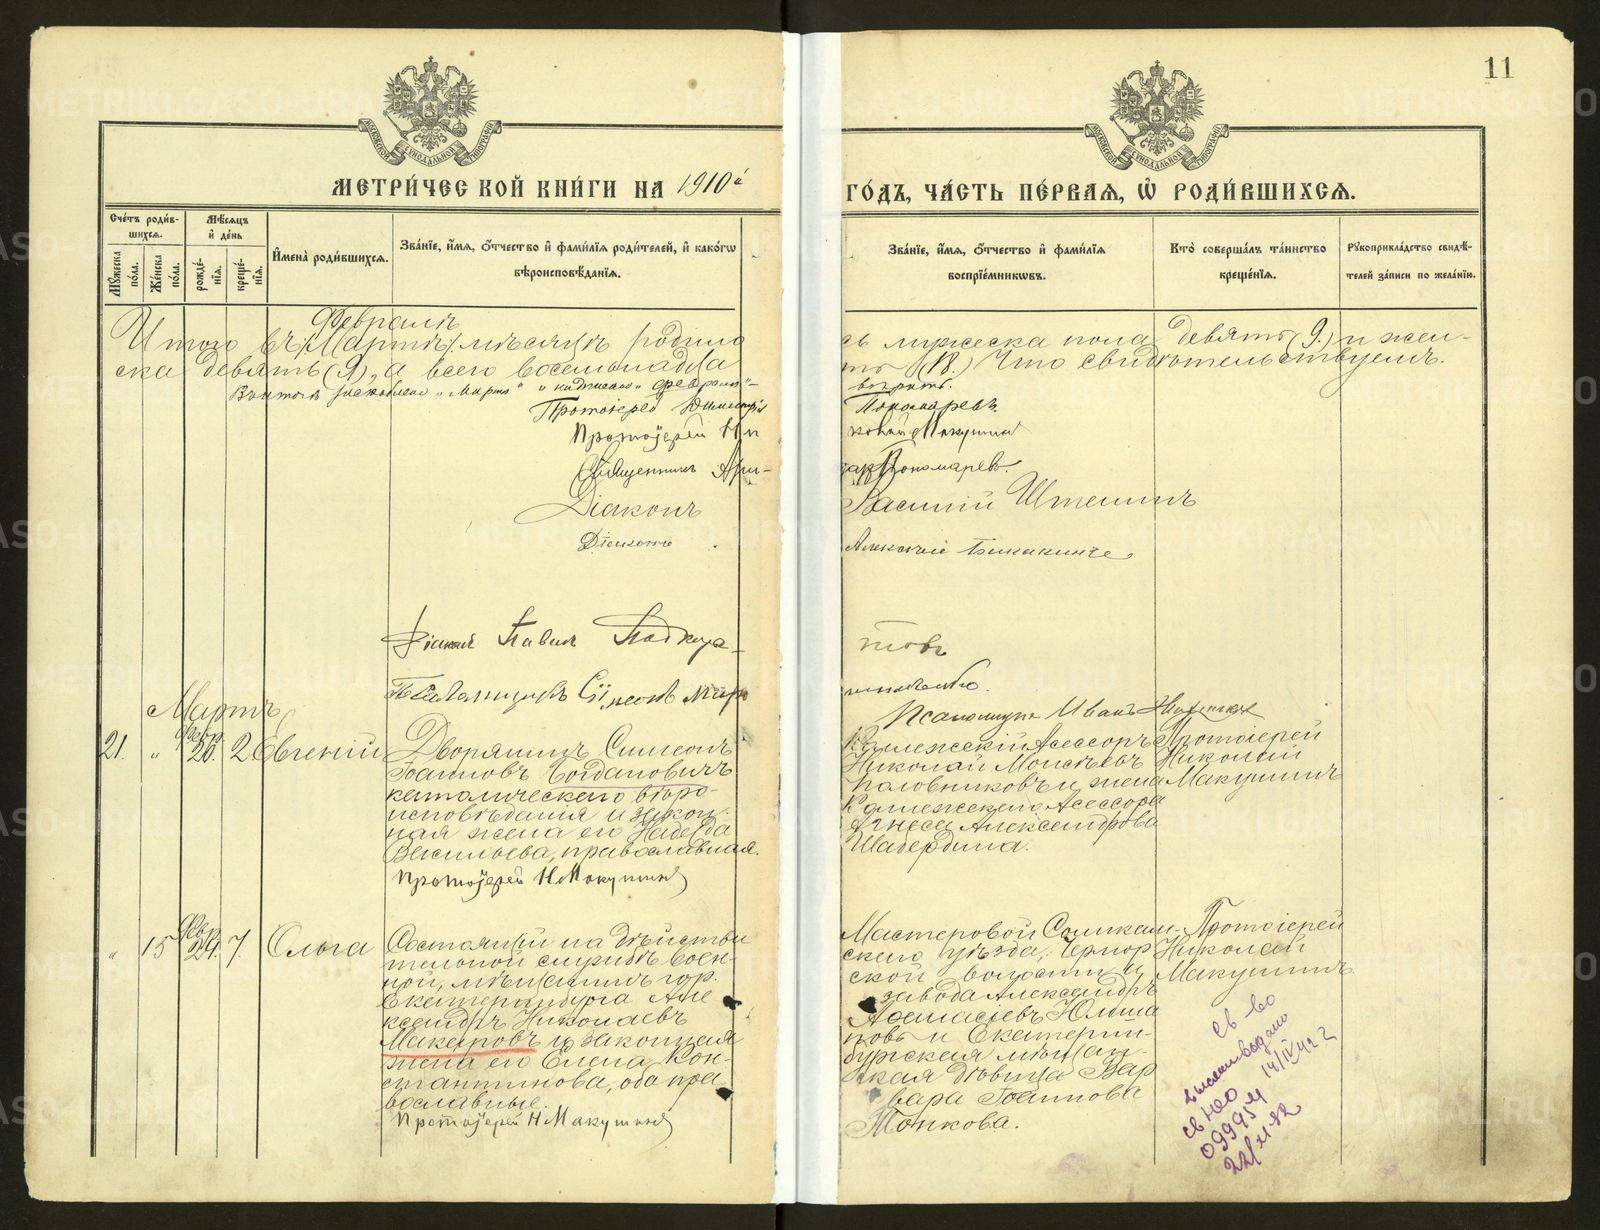 11
МОСКОВСКОЙ СѴНОДАЛЬНОЙ ТИПОГРАФІИ
МОСКОВСКОЙ СѴНОДАЛЬНОЙ ТИПОГРАФІИ
МЕТРИ́ЧЕСКОЙ КНИ́ГИ НА 1910й
ГО́ДЪ, ЧА́СТЬ ПЕ́РВАЯ, Ѡ РОДИ́ВШИХСЯ.
Сче́тъ роди́вшихся.
Мѣ́сяцъ и де́нь
Му́жеска по́ла.
Же́нска по́ла.
рожде́нїя.
креще́нїя.
И́мена роди́вшихся.
Зва́нїе, и́мя, о́тчество и фами́лїя роди́телей, и како́гѡ
вѣроисповѣ́данїя.
Зва́нїе, и́мя, о́тчество и фами́лїя
воспрїе́мникѡвъ.
Кто̀ соверша́лъ та́инство
креще́нїя.
Рꙋкоприкла́дство свидѣ́-
телей за́писи по жела́нїю.
Февралѣ
Итого въ /Мартѣ/ мѣсяцѣ родило
сь мужеска пола девять (9.) и жен-
ска девять (9), а всего восемнадца
ть (18.) Что свидѣтельствуемъ.
"Марта" надписано "Февраль"
вѣрить.
Протоіерей Димитрій
Пономаревъ.
Протоіерей Ни
колай Макушинъ
Священникъ
Пономаревъ.
Діаконъ
Василій
Діаконъ
Алексій
Діаконъ Павелъ
товъ
Псаломщикъ
Псаломщикъ Иванъ
Мартъ
21. " Февр. 20. 2 Евгеній
Дворянинъ Симеонъ
Іоанновъ Богдановичъ
католическаго вѣро-
исповѣданія и закон-
ная жена его Надежда
Васильева, православная.
Протоіерей Н Макушинъ
Коллежскій Ассесоръ
Николай Моисѣевъ
Половниковъ и жена
Коллежскаго Асессора
Агнеса Александрова
Шабердина.
Протоіерей
Николай
Макушинъ
" 15 Февр. 24. 7. Ольга
Состоящій на дѣйстви
тельной службѣ воен-
ной, мѣщанинъ гор.
Екатеринбурга Але
ксандръ Николаевъ
Макаровъ и законная
жена его Елена Кон-
стантинова, оба пра
вославные.
Протоіерей Н Макушинъ
Мастеровой Соликам-
скаго уѣзда,
ской волости и
завода Александръ
Аѳанасіевъ Юлша
новъ и Екатерин-
бургская мѣщан-
ская дѣвица Вар
вара Іоаннова
Тонкова.
Протоіерей
Николай
Макушинъ
св во
выдано
14/IV 42 г
св НЮ
099954
22/XI 82
METRIKI.GASO-URAL.RU